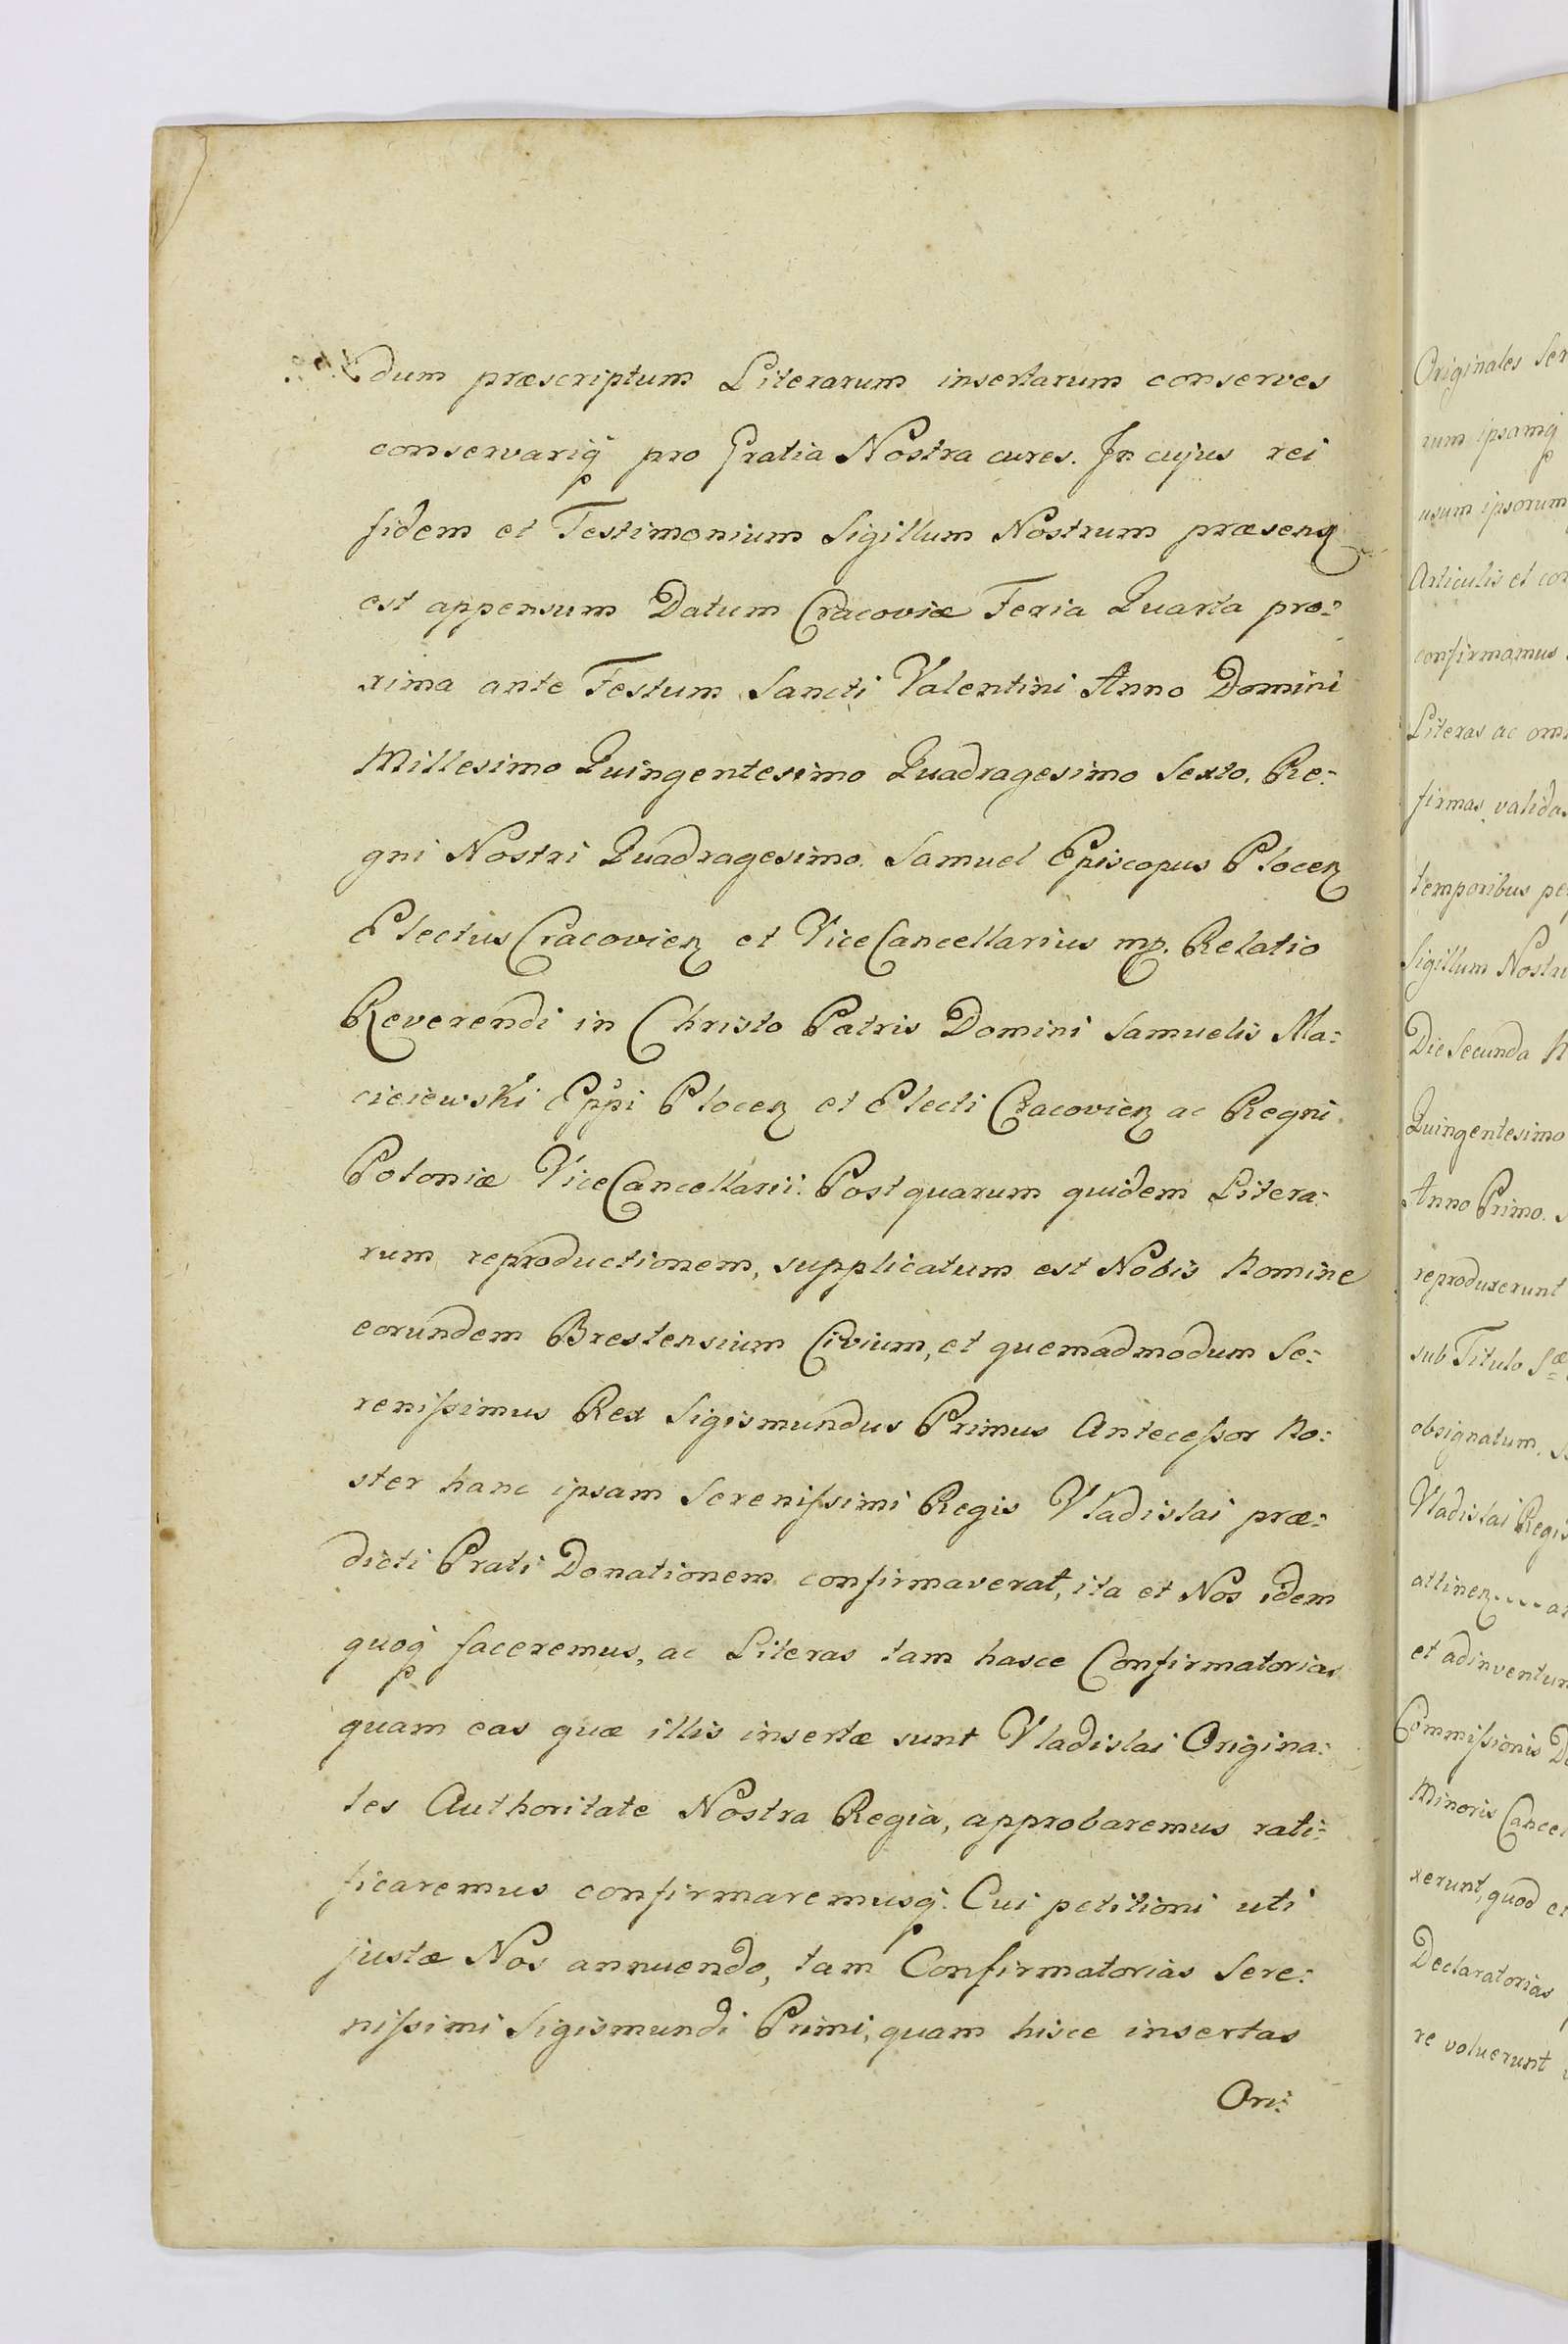 dum præscriptum Literarum insertarum conserves
conservariq̃ pro Gratia Nostra cures. In cujus rei
fidem et Testimonium Sigillum Nostrum præsenꝫ
est appensum Datum Cracoviæ Feria Quarta pro:
xima ante Festum Sancti Valentini Anno Domini
Millesimo Quingentesimo Quadragesimo Sexto. Re:
gni Nostri Quadragesimo. Samuel Episcopus Plocenꝫ
Electus Cracovienꝫ et ViceCancellarius mp. Relatio
Reverendi in Christo Patris Domini Samuelis Ma:
cieiewski Eppi Plocenꝫ et Electi Cracovienꝫ ac Regni
Poloniæ ViceCancellarii. Post quarum quidem Litera:
rum reproductionem, supplicatum est Nobis Nomine
eorundem Brestensium Civium, et quemadmodum Se:
renißimus Rex Sigismundus Primus Anteceßor No:
ster hanc ipsam Serenißimi Regis Vladislai præ:
dicti Prati Donationem confirmaverat, ita et Nos idem
quoq̃ faceremus, ac Literas tam hasce Confirmatorias
quam eas quæ illis insertæ sunt Vladislai Origina:
les Authoritate Nostra Regia, approbaremus rati:
ficaremus confirmaremusq̃. Cui petitioni uti
justæ Nos annuendo, tam Confirmatorias Sere:
nißimi Sigismundi Primi, quam hisce insertas
Ori:
Originales Ser
rum ipsamq̃
usum ipsorum
Articulis et con
confirmamus
Literas ac om
firmas, validas
temporibus pe
Sigillum Nostru
Die Secunda
Quingentesimo
Anno Primo.
reproduxerunt
sub Titulo Sæ
obsignatum.
Vladislai Regis
attinenꝫ
et adinventum
Commißionis D
Minoris Cancel
xerunt, quod et
Declaratorias
re voluerunt